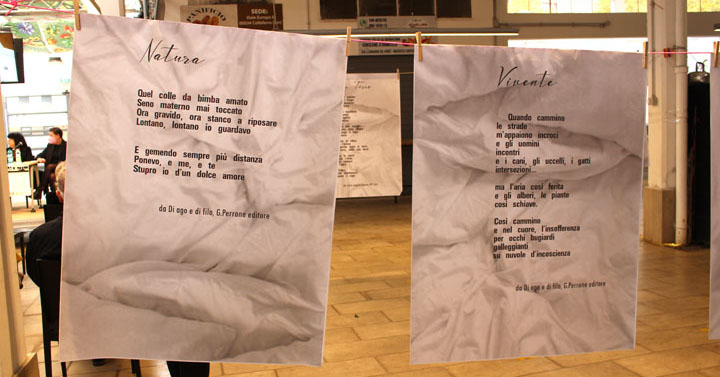 PANIFICIO
SEDE:
Natura
Quel colle da bimba amato
Seno materno mai toccato
Ora gravido, ora stanco a riposare
Lontano, lontano io guardavo
E gemendo sempre più distanza
Ponevo, e me, e te
Stupro io d'un dolce amore
da Di ago e di filo, G.Perrone editore
Vivente
Quando cammino
le strade
m'appaiono incroci
e gli uomini
incontri
e i cani, gli uccelli, i gatti
intersezioni...
ma l'aria così ferita
e gli alberi, le piante
così schiave.
Così cammino
e nel cuore, l'insofferenza
per occhi bugiardi
galleggianti
su nuvole d'incoscienza
da Di ago e di filo, G.Perrone editore